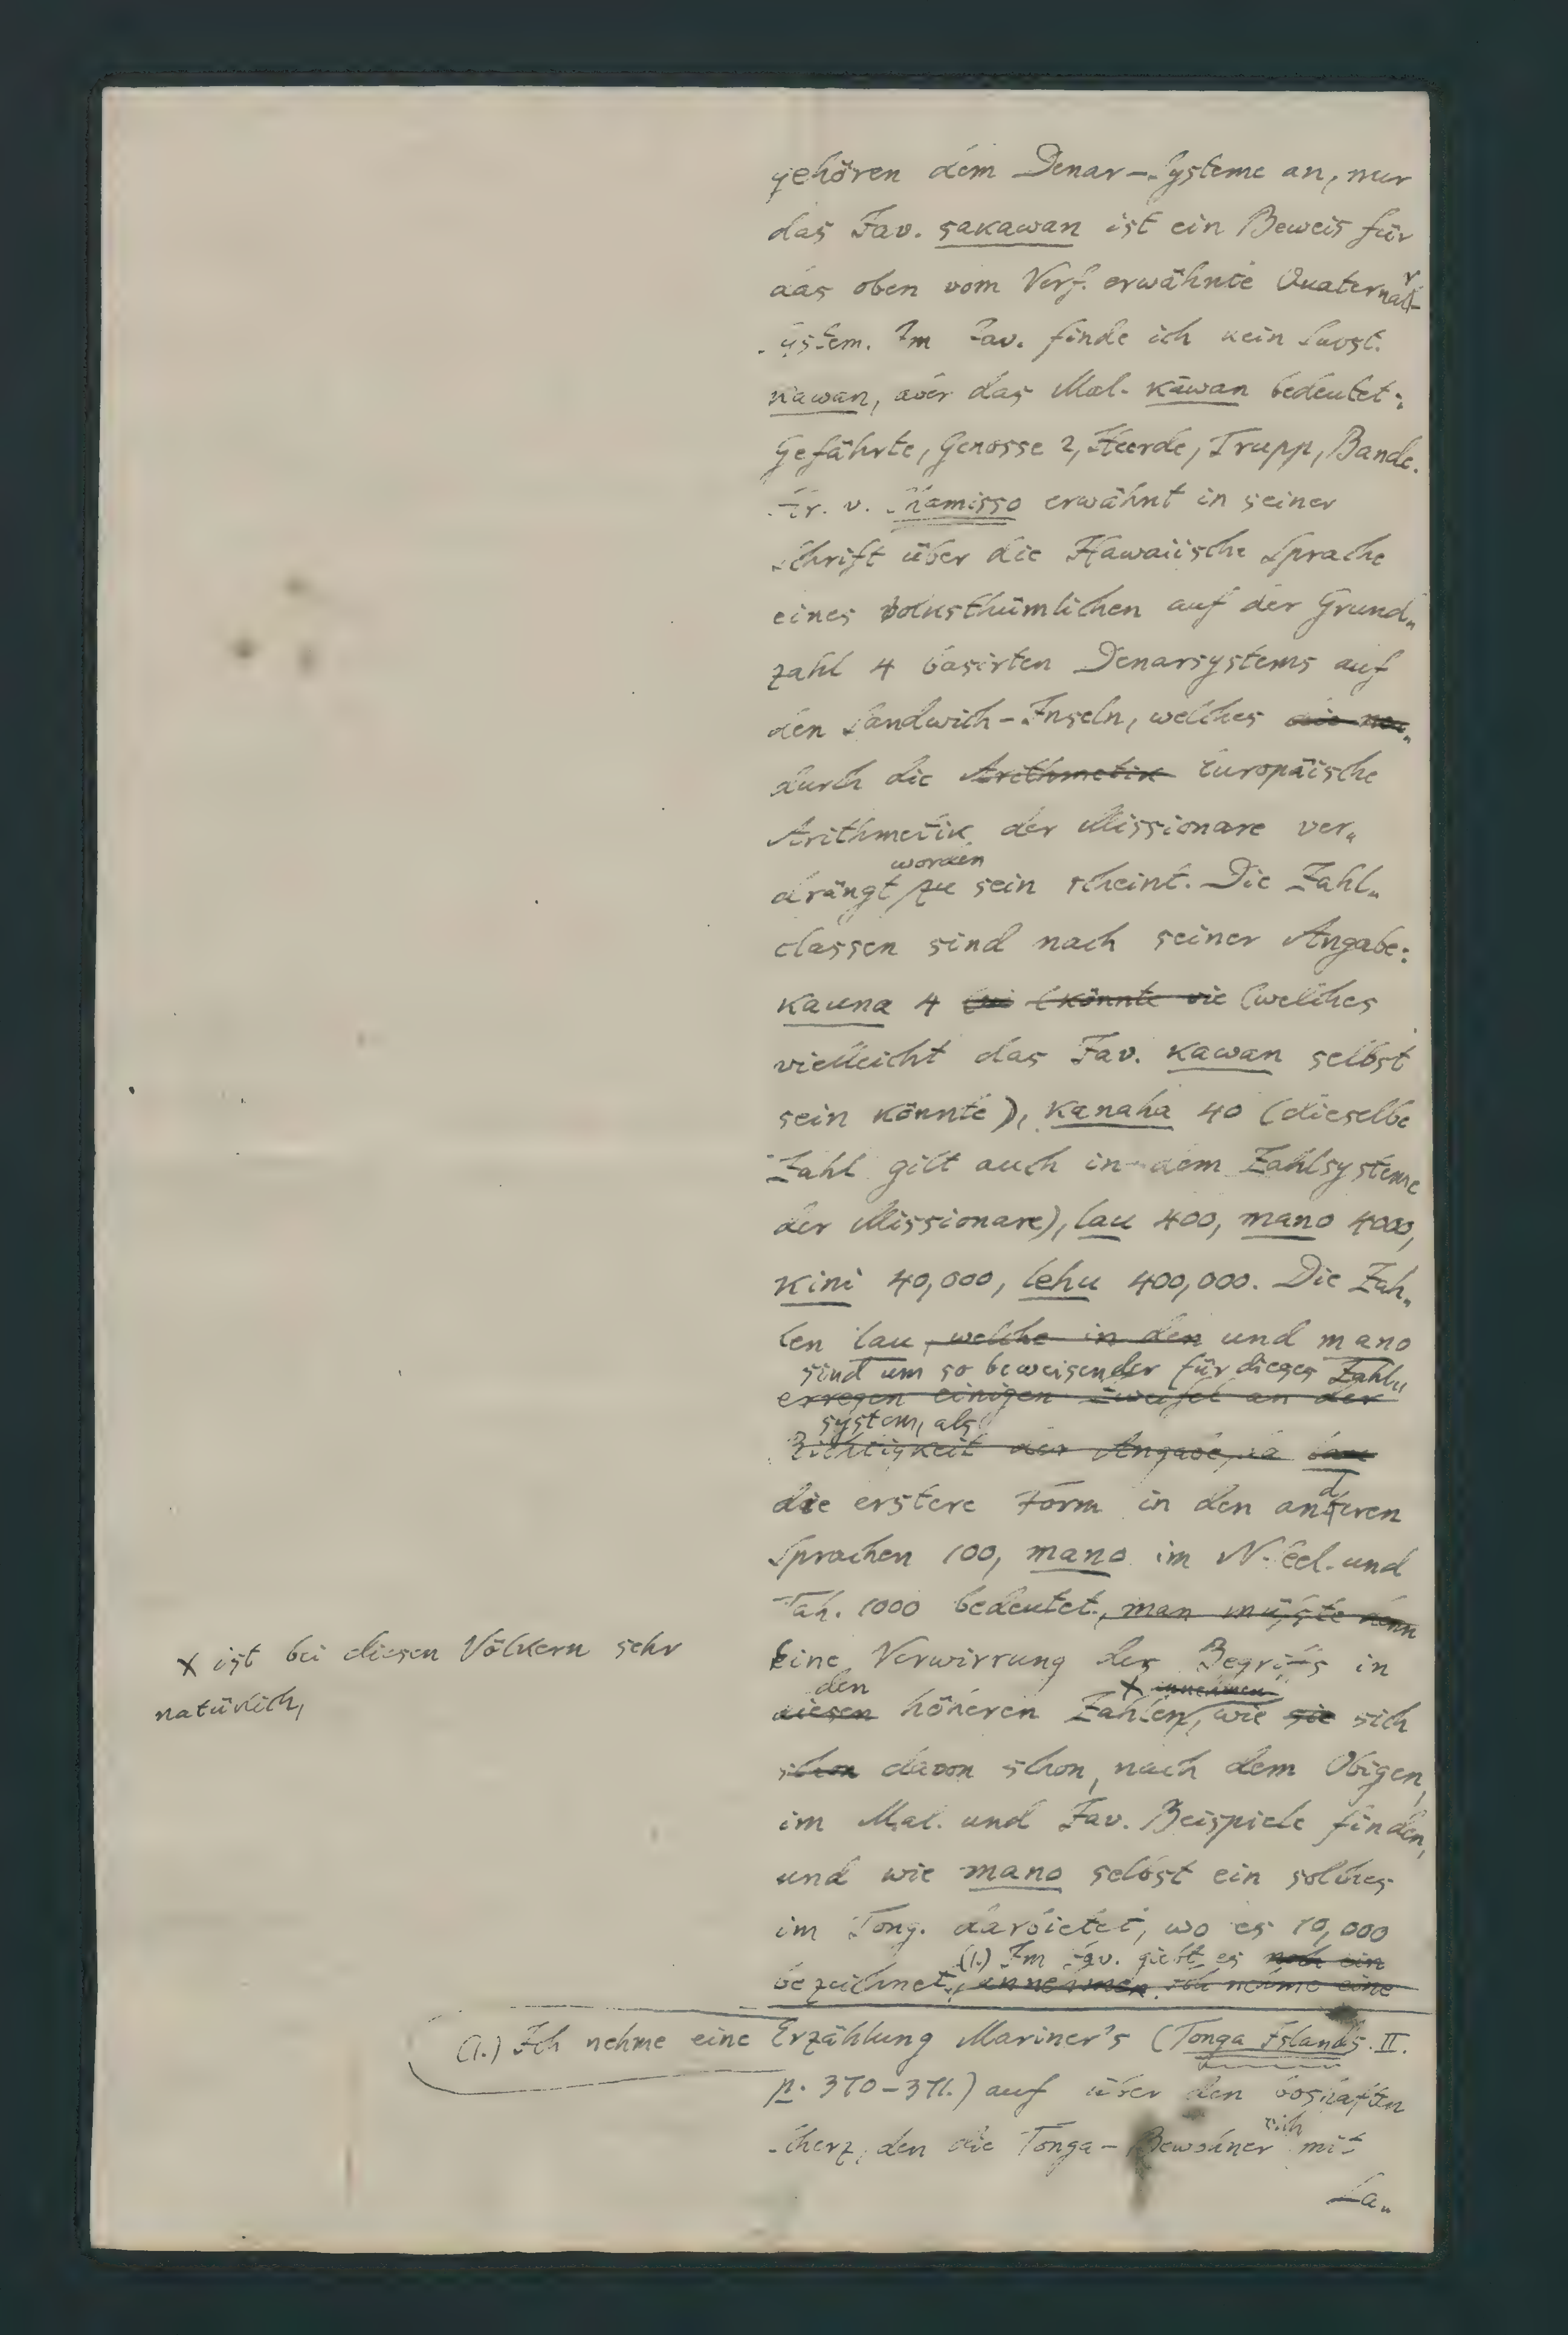 gehören dem Denar-Systeme an, nur
das Jav. sakawan ist ein Beweis für
das oben vom Verf. erwähnte Quaternar-
system. Im Jav. finde ich kein Subst.
kawan, aber das Mal. kāwan bedeutet:
Gefährte, Genosse 2, Heerde, Trupp, Bande.
Hr. v. Chamisso erwähnt in seiner
Schrift über die Hawaiische Sprache
eines volksthümlichen auf der Grund„
zahl 4 basirten Denarsystems auf
den Sandwich-Inseln, welches die neu„
durch die Arithmetik Europäische
Arithmetik der Missionare ver„
worden
drängt zu sein scheint. Die Zahl„
classen sind nach seiner Angabe:
kauna 4 (könnte vie (welches
vielleicht das Jav. kawan selbst
sein könnte), kanaha 40 (dieselbe
Zahl gilt auch in dem Zahlsysteme
der Missionare), lau 400, mano 4000,
kini 40,000, lehu 400,000. Die Zah„
len lau, welche in den und mano
sind um so beweisender für dieses Zahl„
erregen einigen Zweifel an der
system, als
Richtigkeit der Angabe, da lau
die erstere Form in den anderen
Sprachen 100, mano im N. Seel. und
Tah. 1000 bedeutet, man müßte denn
Eine Verwirrung des Begriffs in
den x annehmen
diesen höheren Zahlen, wie sie sich
x ist bei diesen Völkern sehr
natürlich,
schon davon schon, nach dem Obigen,
im Mal. und Jav. Beispiele finden,
und wie mano selbst ein solches
im Tong. darbietet, wo es 10,000
(1.) Im Jav. giebt es noch ein
bezeichnet, annehmen. Ich nehme eine
(1.) Ich nehme eine Erzählung Mariner's (Tonga Islands. II.
p. 370-371.) auf über den boshaften
Scherz, den die Tonga-Bewohner sich mit
La„